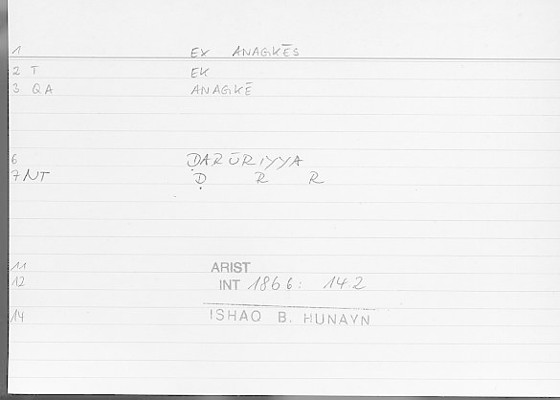 1 EX ANAGKĒS
2 T EK
3 QA ANAGKĒ
6 ḌARŪRIYYA
7 NT Ḍ R R
11 ARIST
12 INT 1866: 142
14 ISHAQ B. HUNAYN